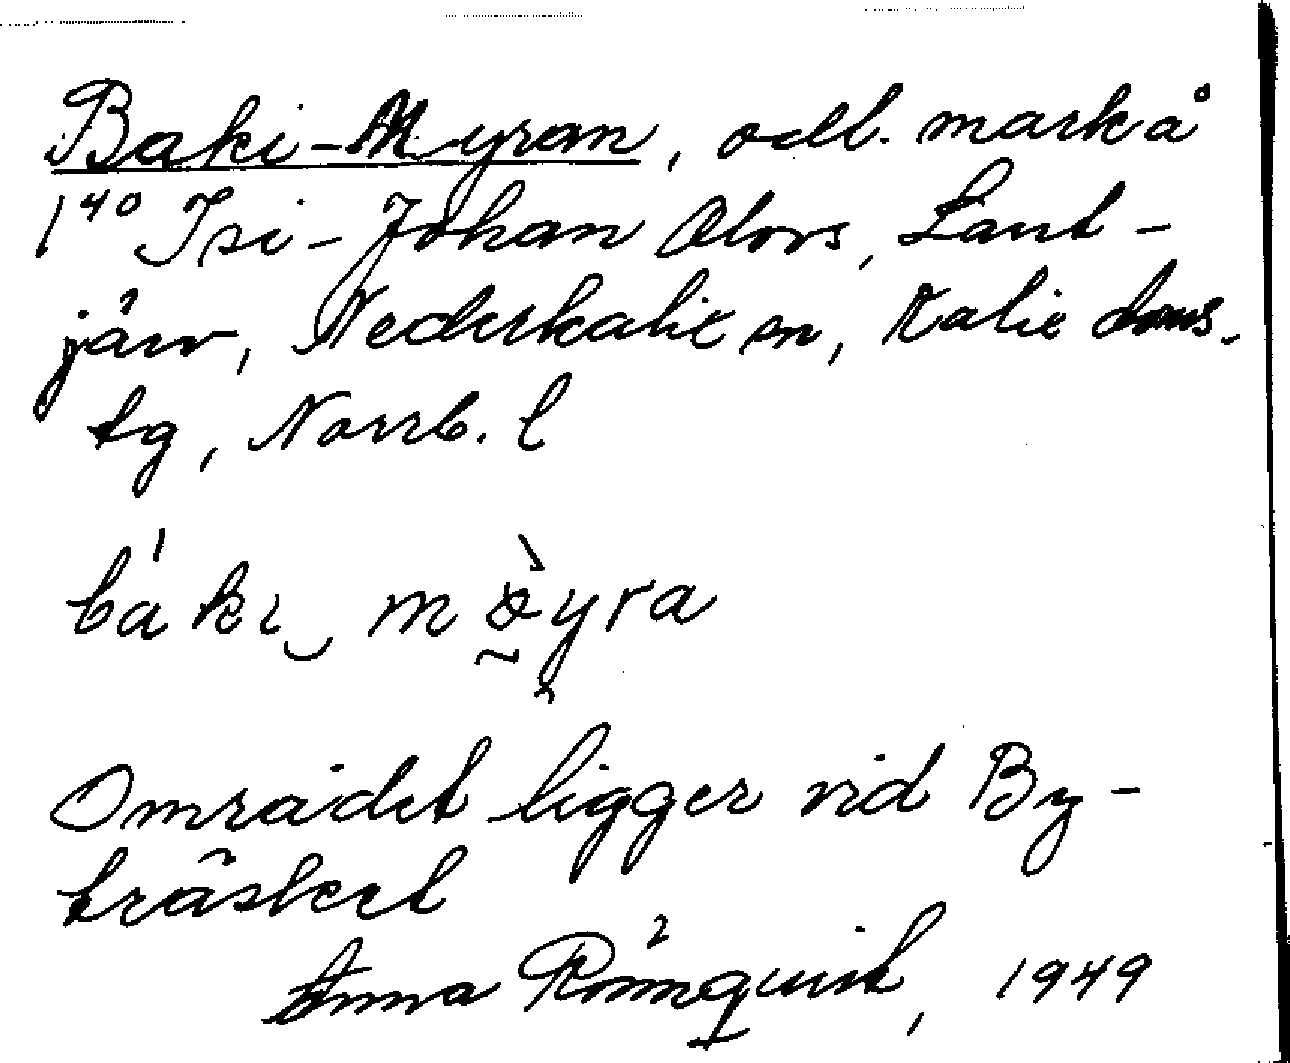 Baki-Myran, odl. mark å
1⁴⁰ Isi-Johan Olovs, Sant-
järv, Nederkalix sn, Kalix doms.
tg, Norrb. l
báki‿ mœ̀yra
Området ligger vid By-
träsket
Anna Rönnquist, 1949